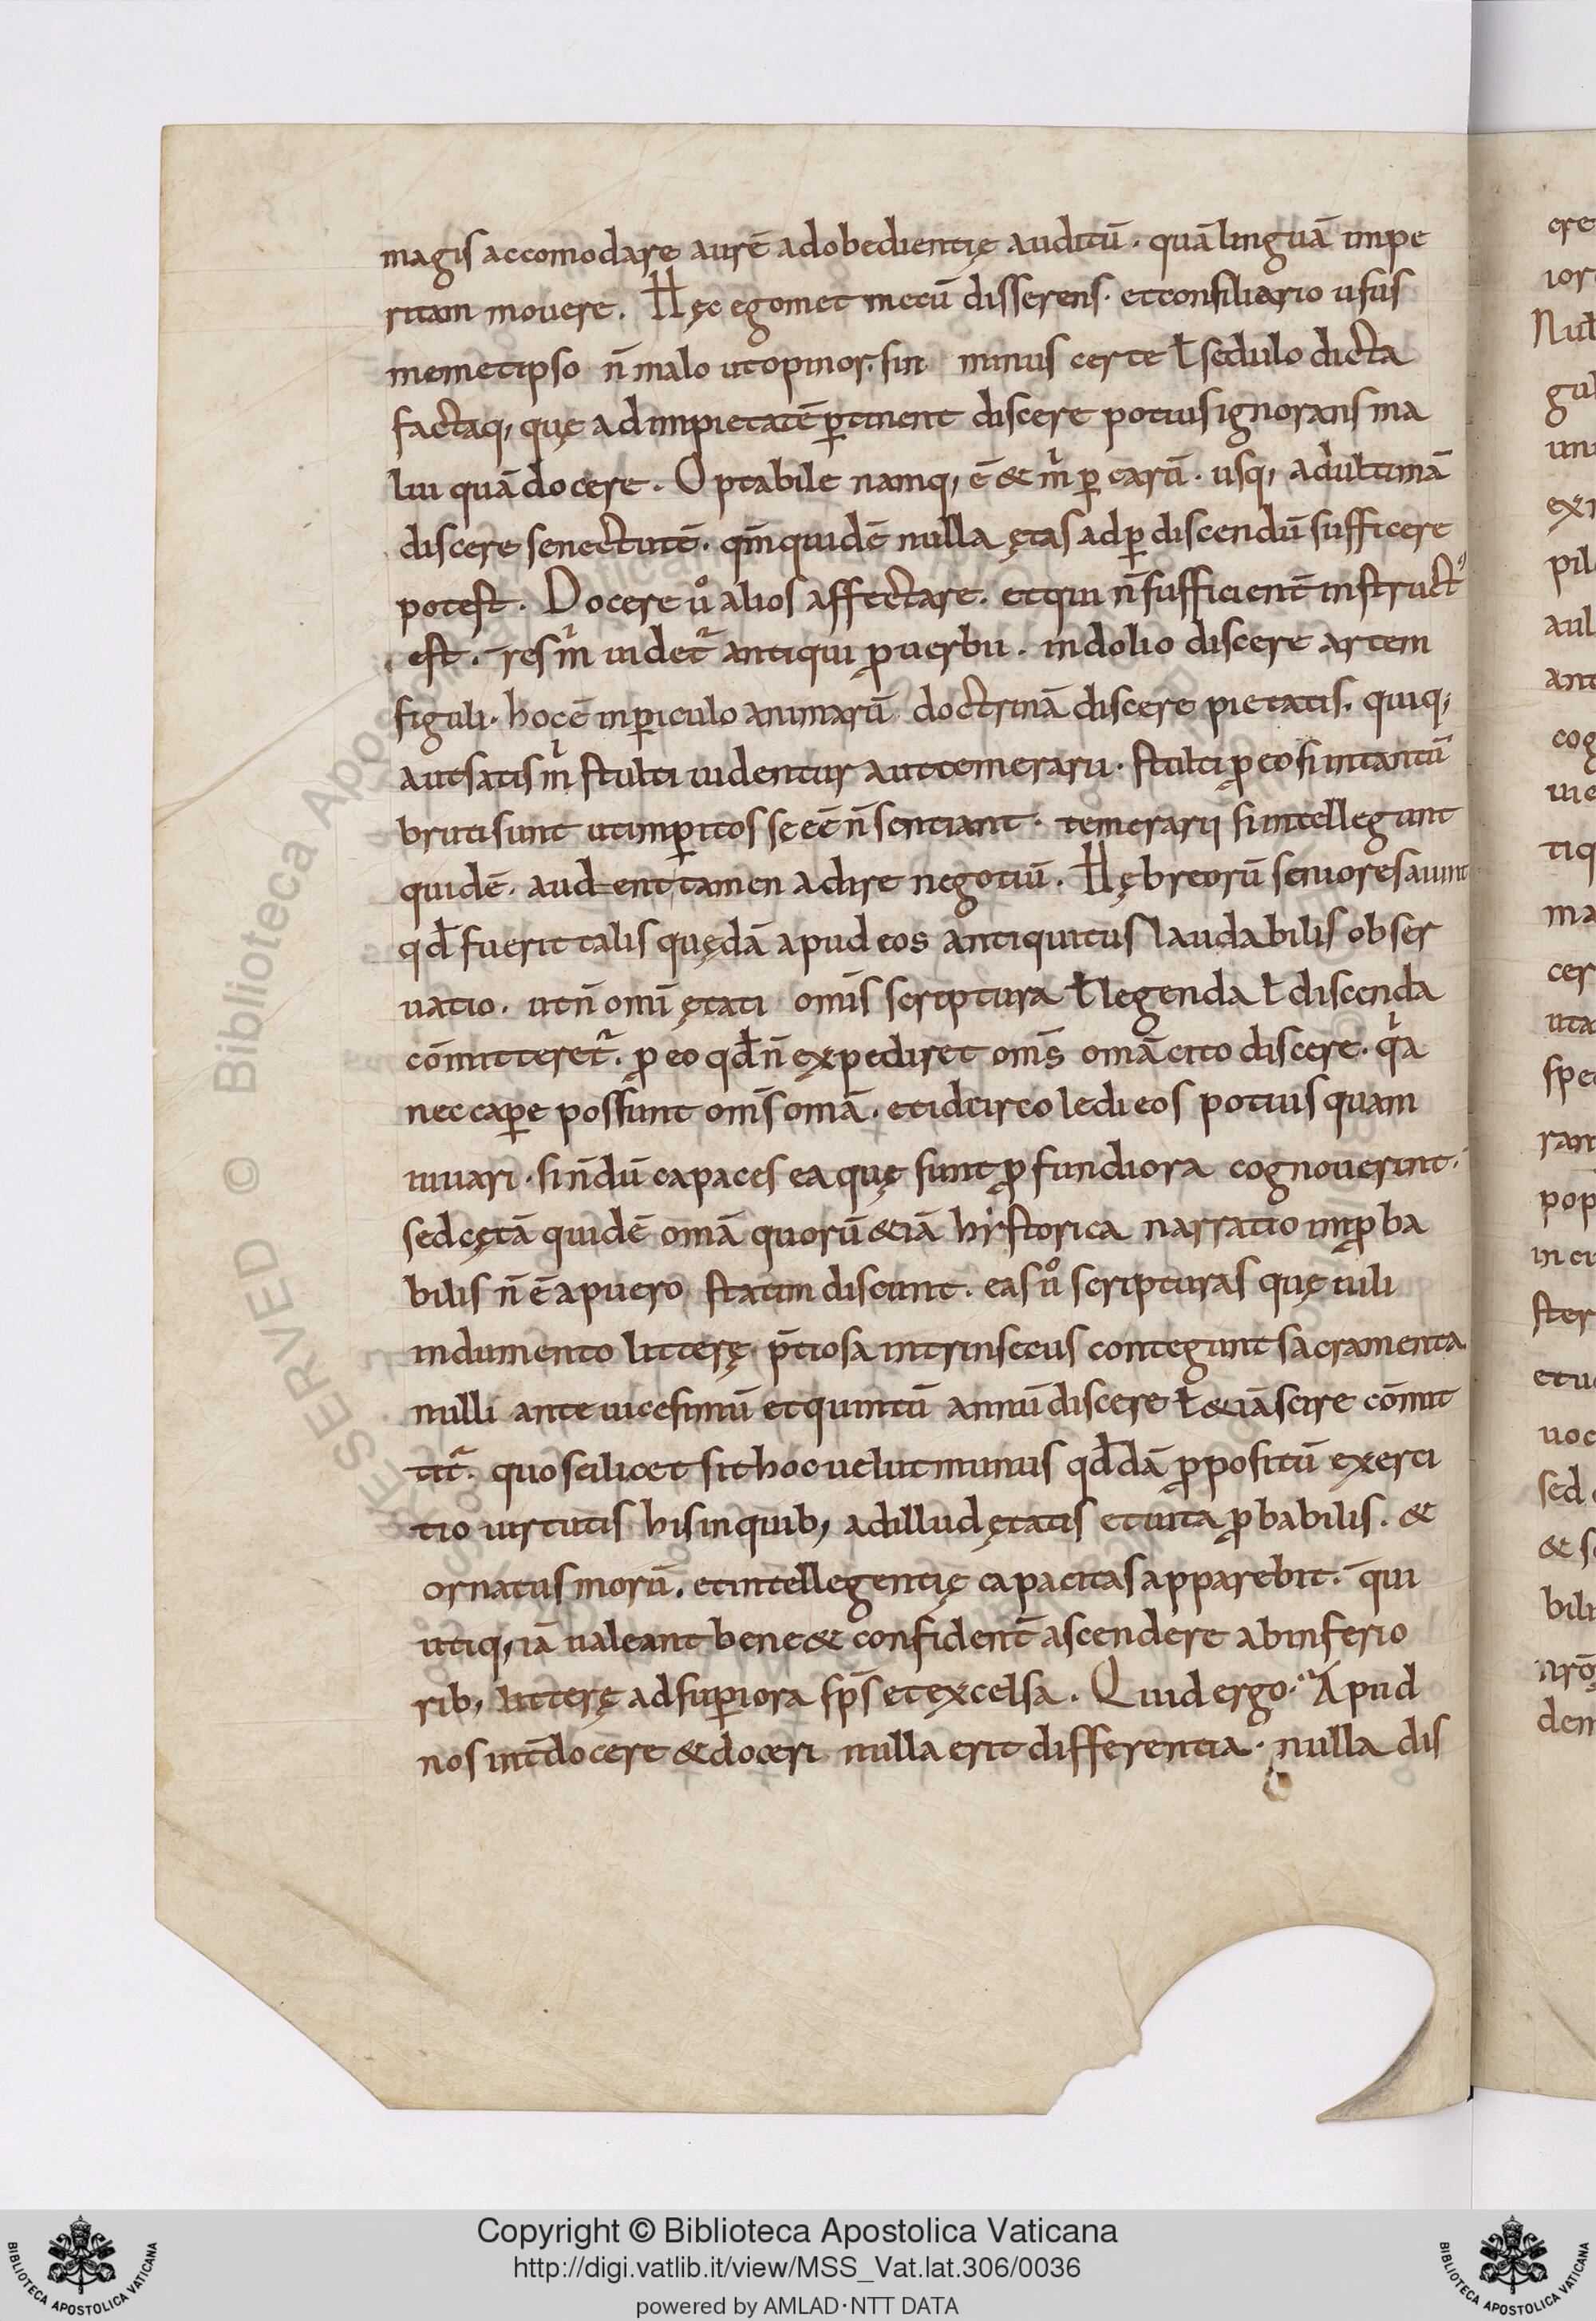 magis accomodare aurē adobedientię auditū. quā linguā impe
ritam mouere. Hęc egomet mecū disserens. et consiliario usus
memetipso n̄ malo ut opinor. sin minus certe ł sedulo dicta
factaq, quę ad impietatē ꝑtinent discere potius ignorans ma
lui quā docere. Optabile namq, ē & m̄ ꝑ carū. usq, adultimā
discere senectutē. qm̄ quidē nulla ętas adꝑdiscendū sufficere
potest. Docere uo alios affectare. et qui n̄ sufficient̄ instruct᾿
est. res m̄ uidet᾿ antiqui ꝓuerbii. indolio discere artem
figuli. hoc ē inꝑiculo animarū doctrinā discere pietatis. quiq,
aut satis m̄ stulti uidentur aut temerarii. stulti ꝓ eo si intantū
bruti sunt ut imꝑitos se eē n̄ sentiant. temerarij si intellegunt
quidē. audent tamen adire negotiū. Hębreorū seniores aiunt
qđ fuerit talis quędā apud eos antiquitus laudabilis obser
uatio. ut n̄ omi ętati omīs scriptura ł legenda ł discenda
cōmitteret᾿. ꝓ eo qđ n̄ expediret oms̄ omā cito discere. qa
nec caꝑe possunt oms̄ omā. et idcirco ledi eos potius quam
iuuari. si n̄dū capaces ea quę sunt ꝓfundiora cognouerint.
sed cętā quidē omā quorū &iā hystorica narratio imꝓba
bilis n̄ ē a puero statim discunt. eas uo scripturas quę uili
indumento litterę p̄tiosa intrinsecus contegunt sacramenta
nulli ante uicesimū et quintū annū discere ł &iā scire cōmit
tit᾿. quo scilicet sit hoc uelut munus qđdā ꝓpositū exerci
tio uirtutis his inquib, ad illud ętatis et uita ꝓbabilis. &
ornatus morū. et intellegentię capacitas apparebit. q̄ui
utiq, iā ualeant bene & confident̄ ascendere abinferio
rib, litterę ad suꝑiora sp̄s et excelsa. Quid ergo. Apud
nos int̄ docere & doceri nulla erit differentia. nulla dis
ere
ior
Nul
gul
uni
exr
pil
aul
ant
cog
uie
tiq
ma
cer
uta
spe
ram
pop
in cu
ster
etu
uoc
sed
& s
bili
dem
RESERVED © Biblioteca Apostolica Vaticana
Copyright © Biblioteca Apostolica Vaticana
http://digi.vatlib.it/view/MSS_Vat.lat.306/0036
powered by AMLAD·NTT DATA
BIBLIOTECA APOSTOLICA VATICANA
BIBLIOTECA APOSTOLICA VATICANA